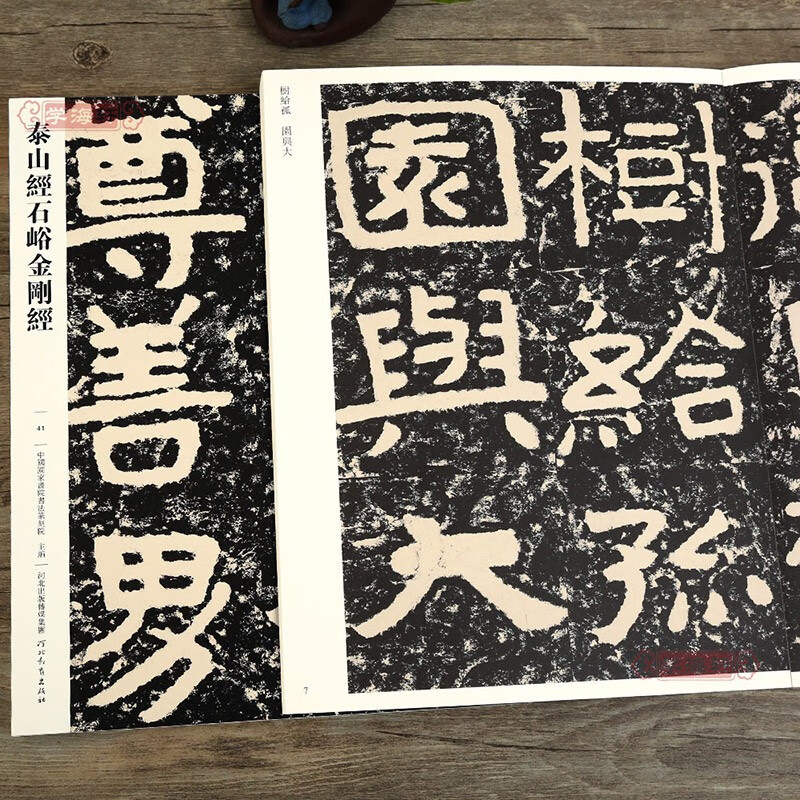 泰山經石峪金剛經
41
中國國家畫院書法篆刻院 主編
河北出版傳媒集團
河北教育出版社
尊善男
樹給孤 園與大
樹給孤
園與大
7
学海